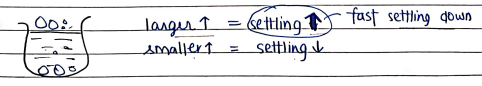 larger ↑ = settling ↑ fast settling down
smaller ↑ = settling ↓